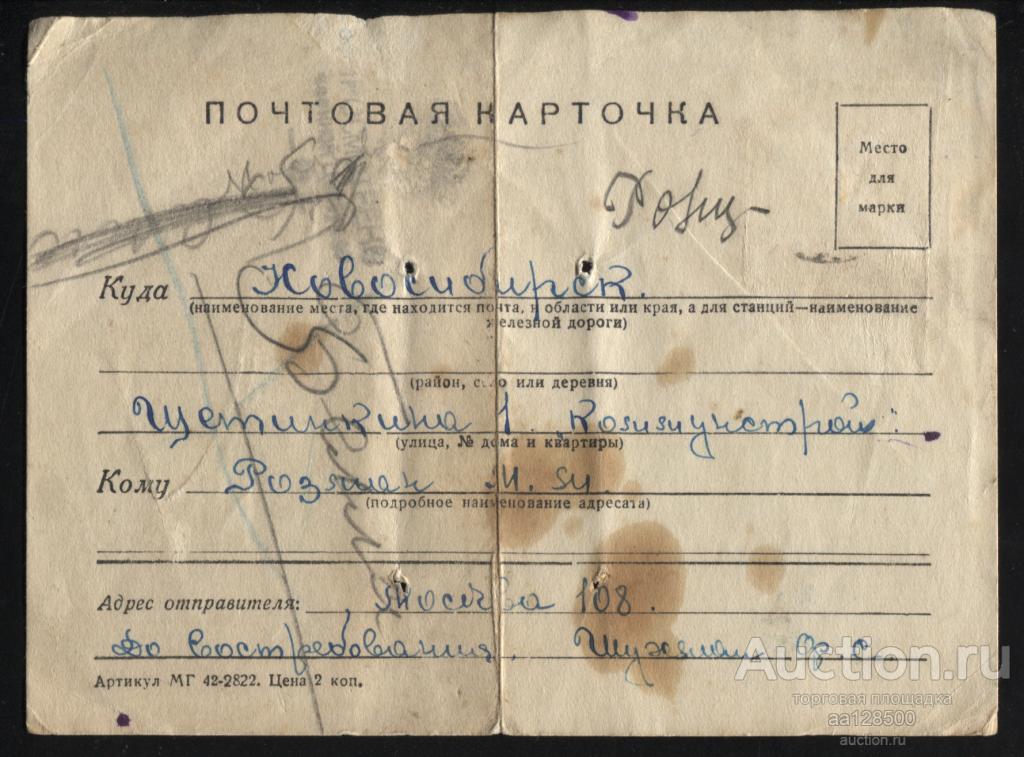 ПОЧТОВАЯ КАРТОЧКА
Место
для
марки
Куда Новосибирск.
(наименование места, где находится почта, и области или края, а для станций—наименование
железной дороги)
(район, село или деревня)
Щетинкина 1.
(улица, № дома и квартиры)
Кому Розман
(подробное наименование адресата)
Адрес отправителя: Москва 108.
До востребования.
Артикул МГ 42-2822. Цена 2 коп.
Auction.ru
торговая площадка
aa128500
auction.ru